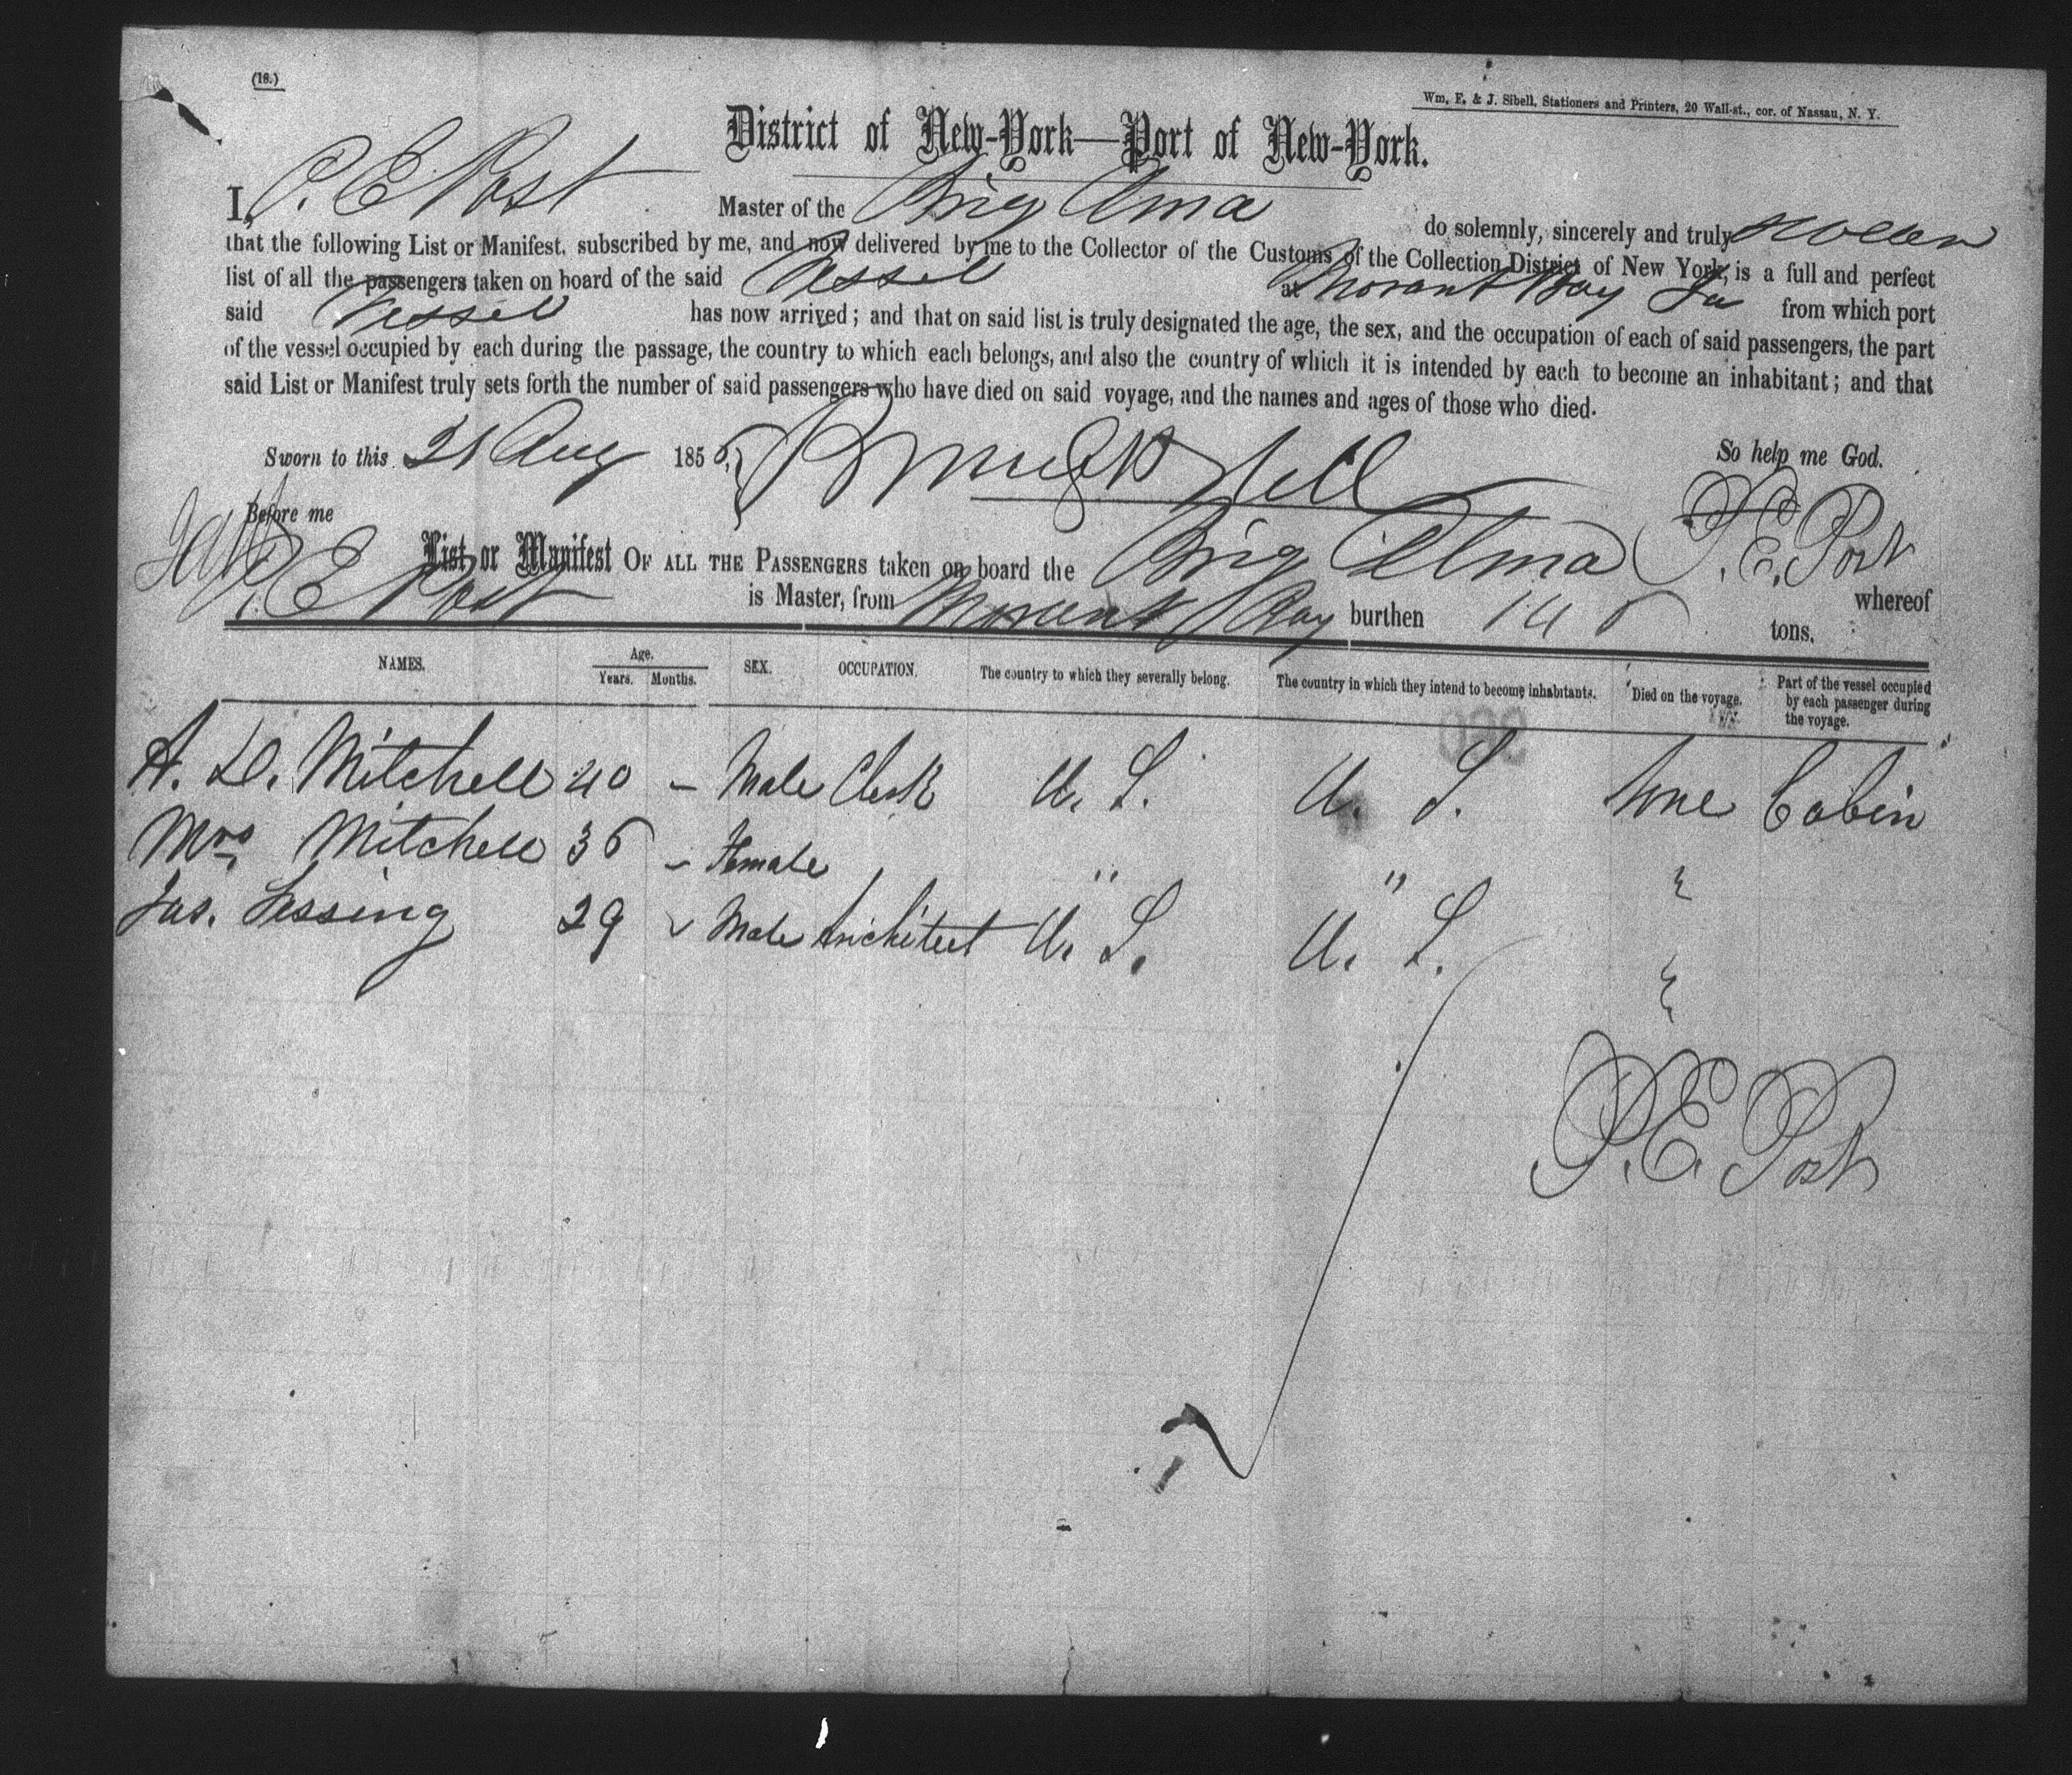 (18.)
Wm. E. & J. Sibell, Stationers and Printers, 20 Wall-st., cor. of Nassau, N. Y.
District of New-York—Port of New-York.
I, P. E Post Master of the Brig Alma do solemnly, sincerely and truly swear
that the following List or Manifest, subscribed by me, and now delivered by me to the Collector of the Customs of the Collection District of New York, is a full and perfect
list of all the passengers taken on board of the said Vessel at Morant Bay Ja from which port
said Vessel has now arrived; and that on said list is truly designated the age, the sex, and the occupation of each of said passengers, the part
of the vessel occupied by each during the passage, the country to which each belongs, and also the country of which it is intended by each to become an inhabitant; and that
said List or Manifest truly sets forth the number of said passengers who have died on said voyage, and the names and ages of those who died.
Sworn to this 21 Aug 185 So help me God.
Before me P. E. Post
List or Manifest OF ALL THE PASSENGERS taken on board the Brig Alma whereof
P. E Post is Master, from Morant Bay burthen tons.
NAMES. Age. Years. Months. SEX. OCCUPATION. The country to which they severally belong. The country in which they intend to become inhabitants. Died on the voyage. Part of the vessel occupied by each passenger during the voyage.
A. D. Mitchell 40 – Male Clerk U. S. U. S. None Cabin
Mrs Mitchell 36 – Female " " "
Jas. Lessing 29 Male Architect U. S. U. S. "
P. E. Post